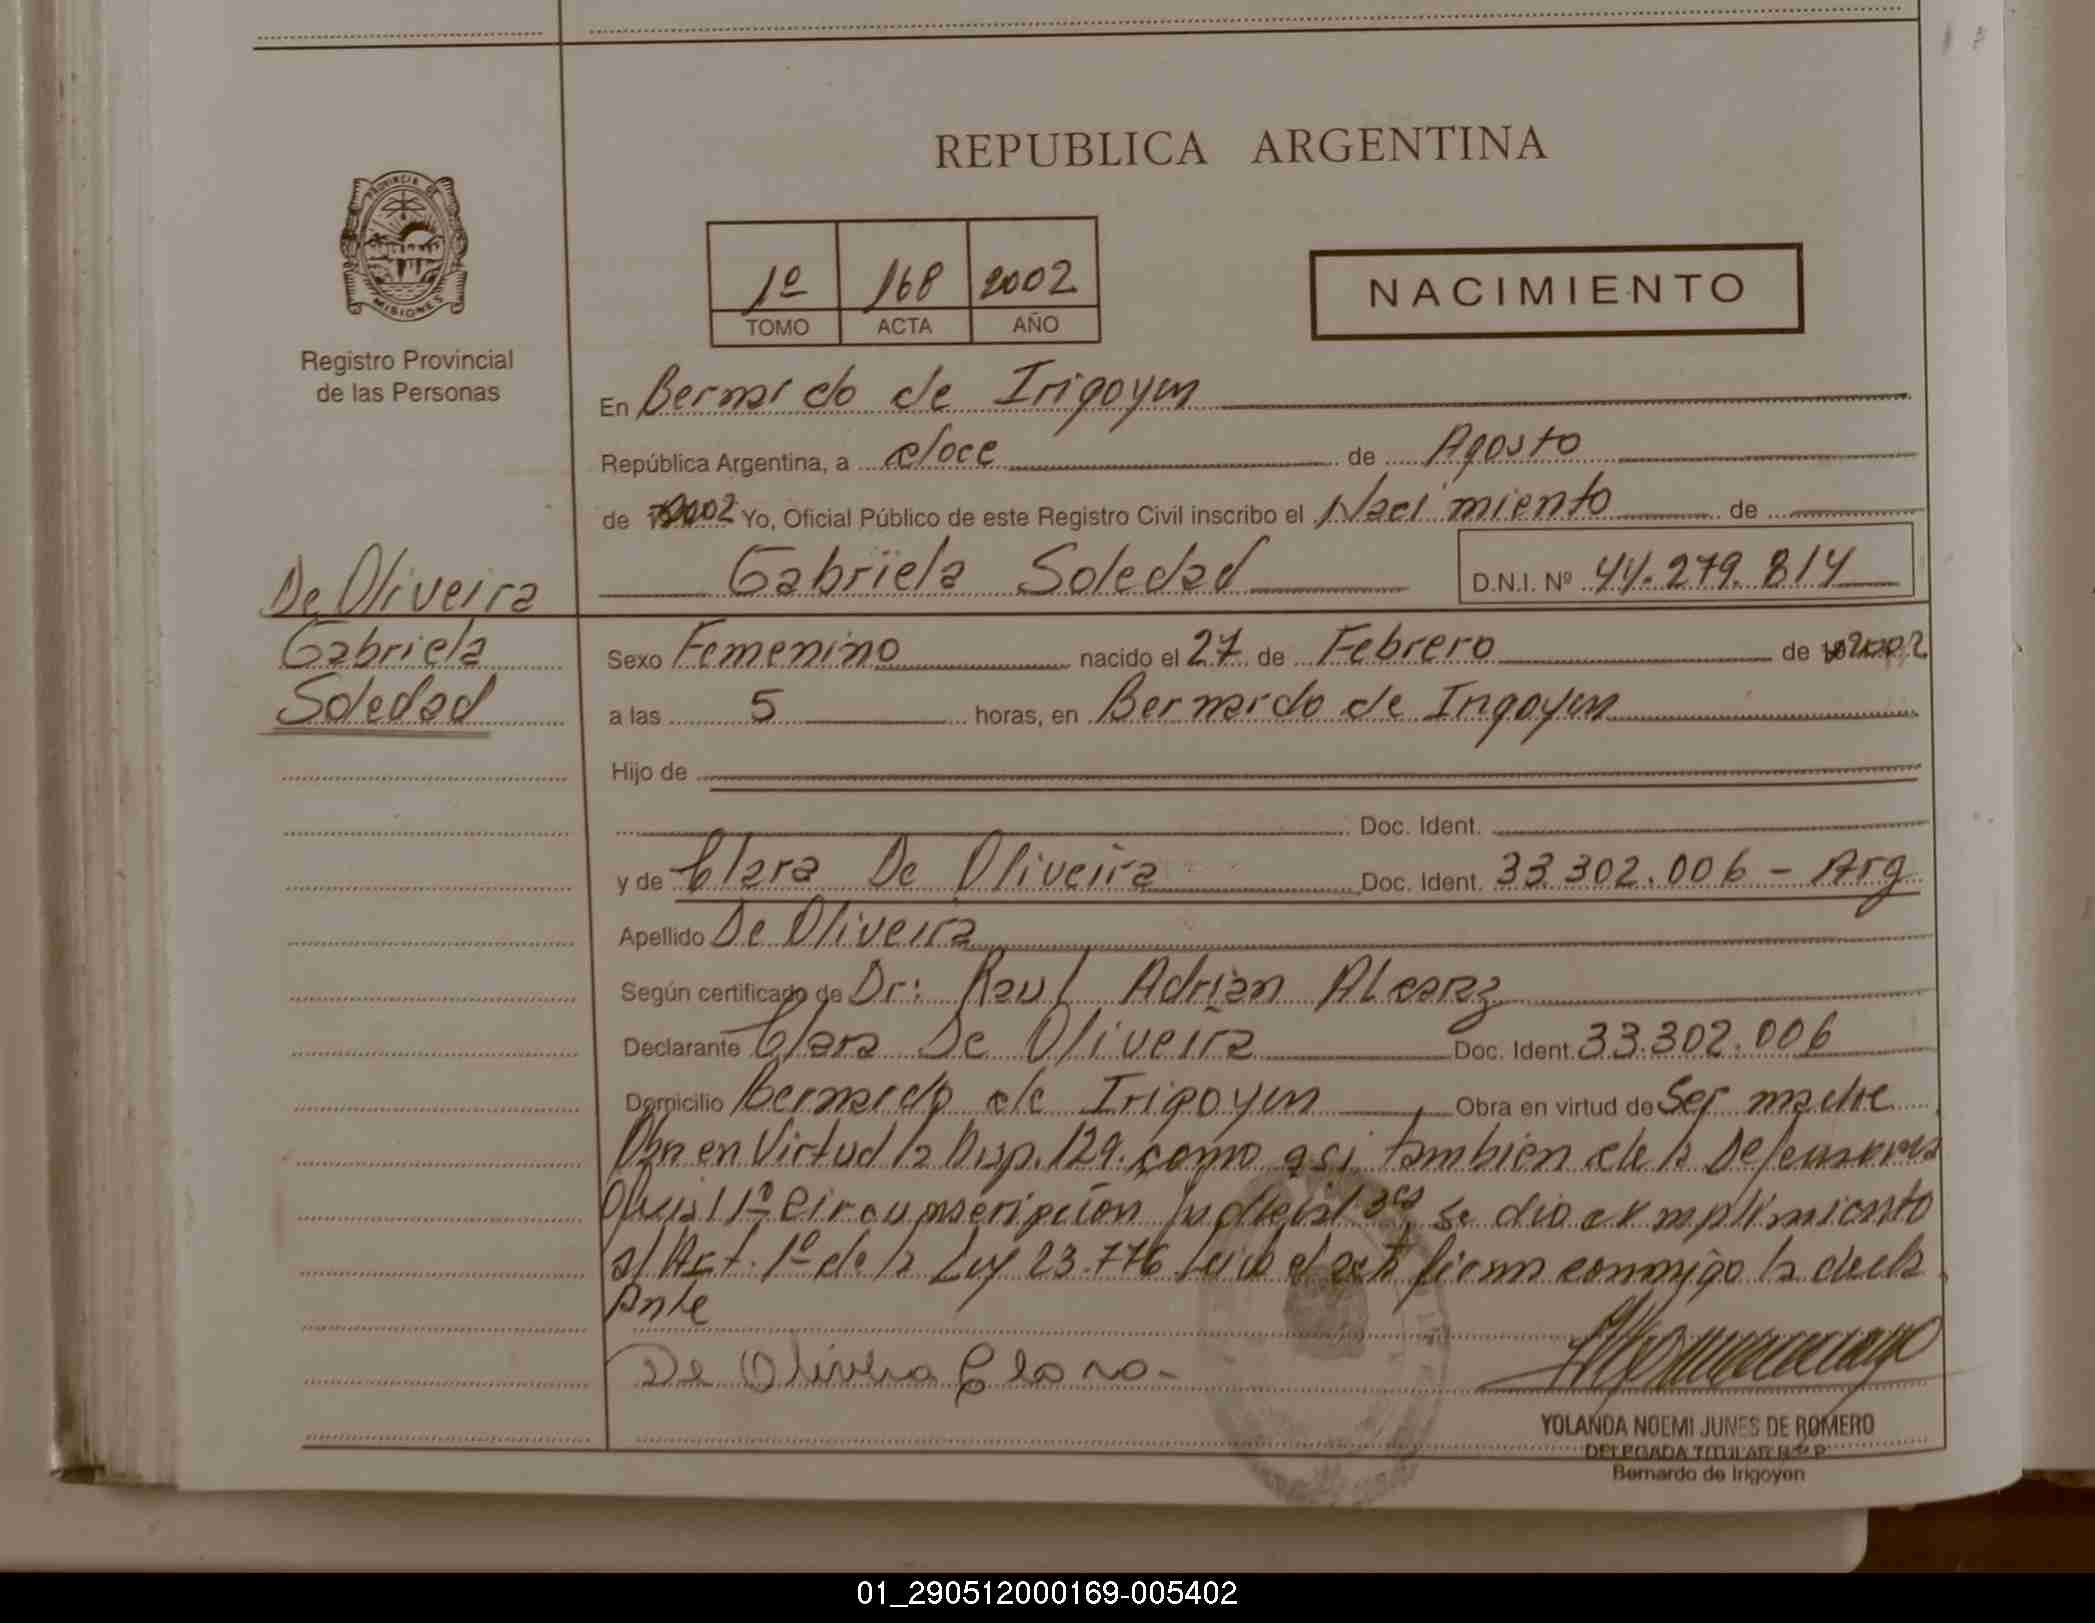 REPUBLICA ARGENTINA
PROVINCIA DE
MISIONES
Registro Provincial
de las Personas
1º 168 2002
TOMO ACTA AÑO
NACIMIENTO
En Bernardo de Irigoyen
República Argentina, a doce de Agosto
de 2002 Yo, Oficial Público de este Registro Civil inscribo el Nacimiento de
Gabriela Soledad D.N.I. Nº 44.279.814
De Oliveira
Gabriela
Soledad
Sexo Femenino nacido el 27 de Febrero de 2002
a las 5 horas, en Bernardo de Irigoyen
Hijo de
Doc. Ident.
y de Clara De Oliveira Doc. Ident. 33.302.006 - Arg
Apellido De Oliveira
Según certificado de Dr: Raul Adrián Alcaraz
Declarante Clara De Oliveira Doc. Ident. 33.302.006
Domicilio Bernardo de Irigoyen Obra en virtud de Ser madre
Obra en Virtud la Disp. 129. como asi también de la Defensoria
1º Circunscripción Judicial se dio cumplimiento
al Art. 1º de la Ley 23.776 leida el acta firma conmigo la decla
Ante
De Oliveira Clara.-
YOLANDA NOEMI JUNES DE ROMERO
DELEGADA TITULAR R.P.P.
Bernardo de Irigoyen
01_290512000169-005402